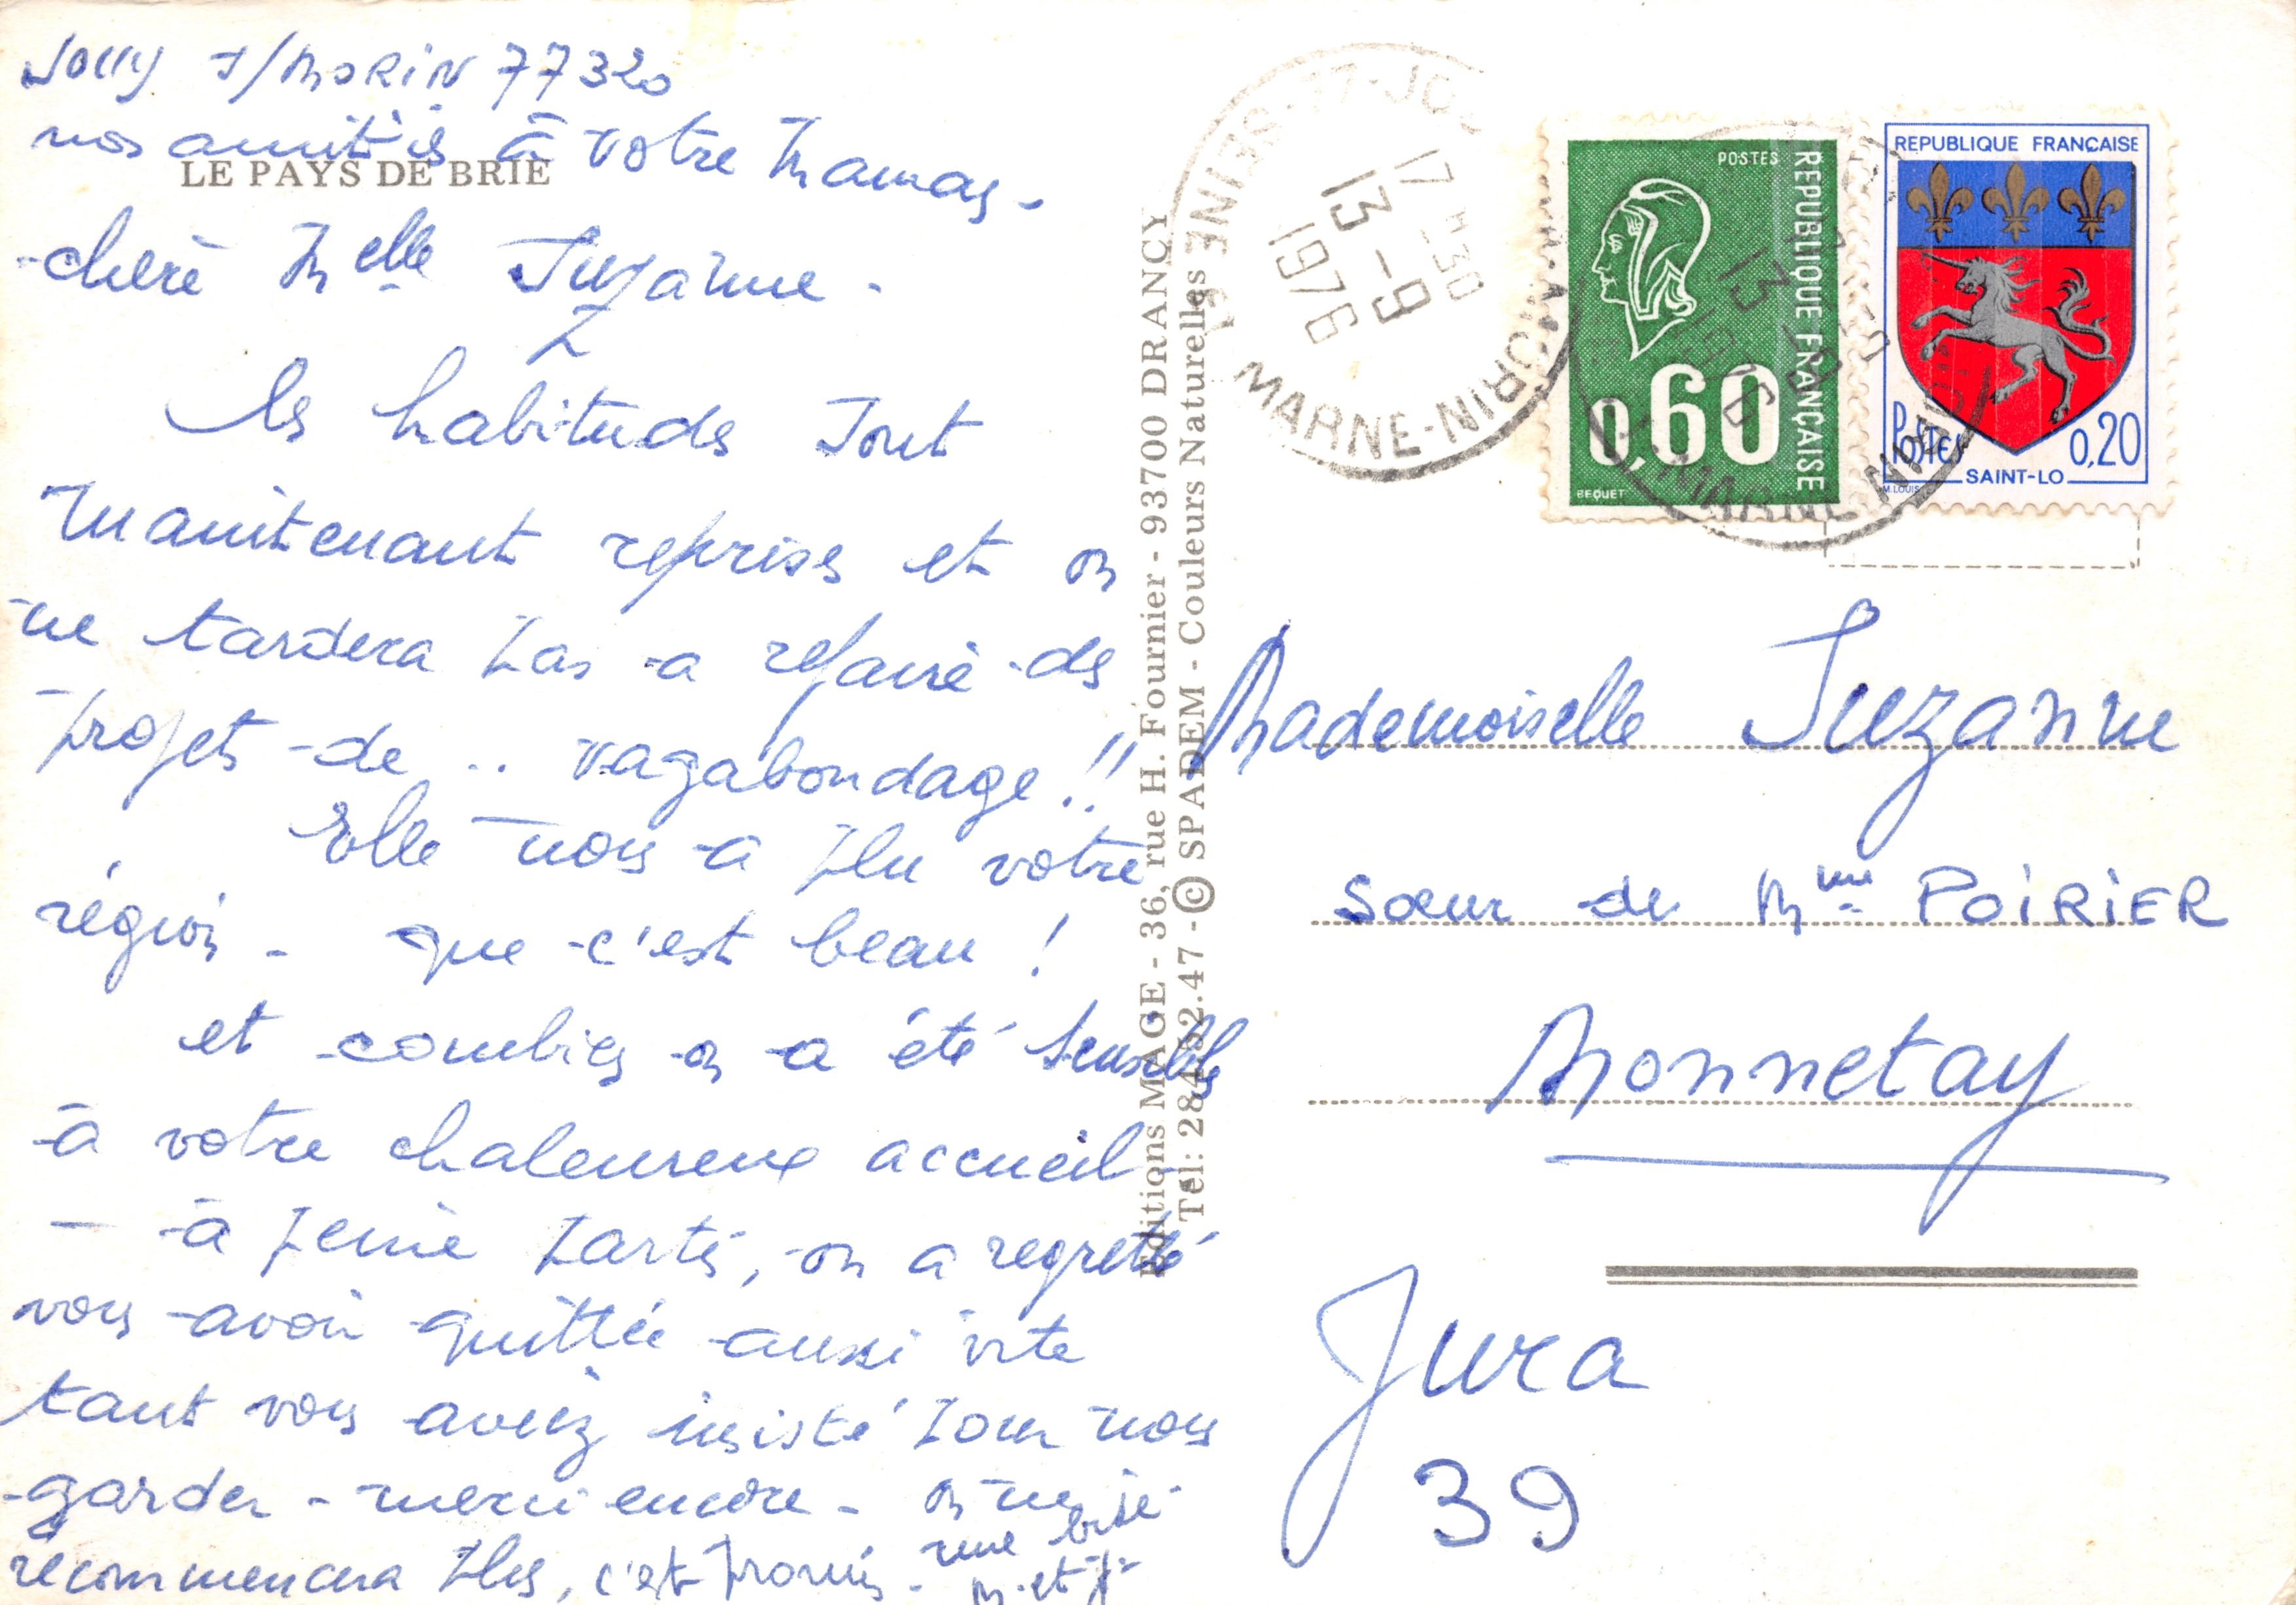 Jouy s/MORIN 77320
nos amitiés à votre Maman -
LE PAYS DE BRIE
chère Melle Suzanne -
les habitudes sont
maintenant reprises et on
ne tardera pas a refaire des
projets de .. vagabondage !!
Elle nous a plu votre
région - que c'est beau !
et combien on a été sensibles
à votre chaleureux accueil
- à peine partis, on a regretté
vous avoir quittée aussi vite
tant vous aviez insisté pour nous
garder - merci encore - on ne
recommencera plus, c'est promis - une bise
M. et J.
Editions MAGE - 36, rue H. Fournier - 93700 DRANCY
Tél: 284.52.47 - © SPADEM - Couleurs Naturelles
17 H 30
13 - 9
1976
SEINE-ET-MARNE
POSTES
REPUBLIQUE FRANÇAISE
0,60
BEQUET
REPUBLIQUE FRANÇAISE
POSTES 0,20
SAINT-LO
M. LOUIS
Mademoiselle Suzanne
sœur de Mme POIRIER
Monnetay
Jura
39